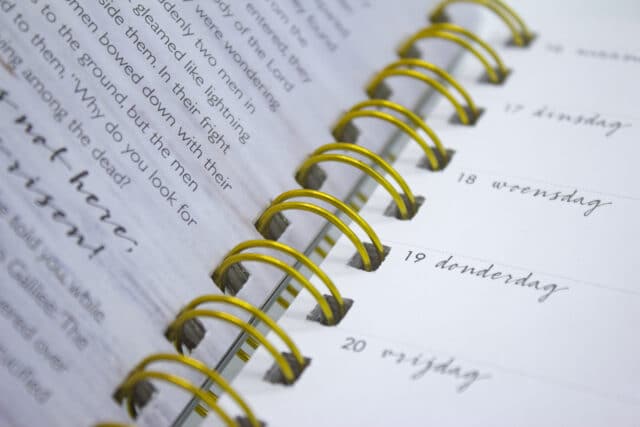 they found
entered, they
body of the Lord
they were wondering
suddenly two men in
gleamed like lightning
side them. In their fright
women bowed down with their
to the ground, but the men
to them, “Why do you look for
among the dead?
not here,
risen!
told you, while
Galilee: The
over
17 dinsdag
18 woensdag
19 donderdag
20 vrijdag